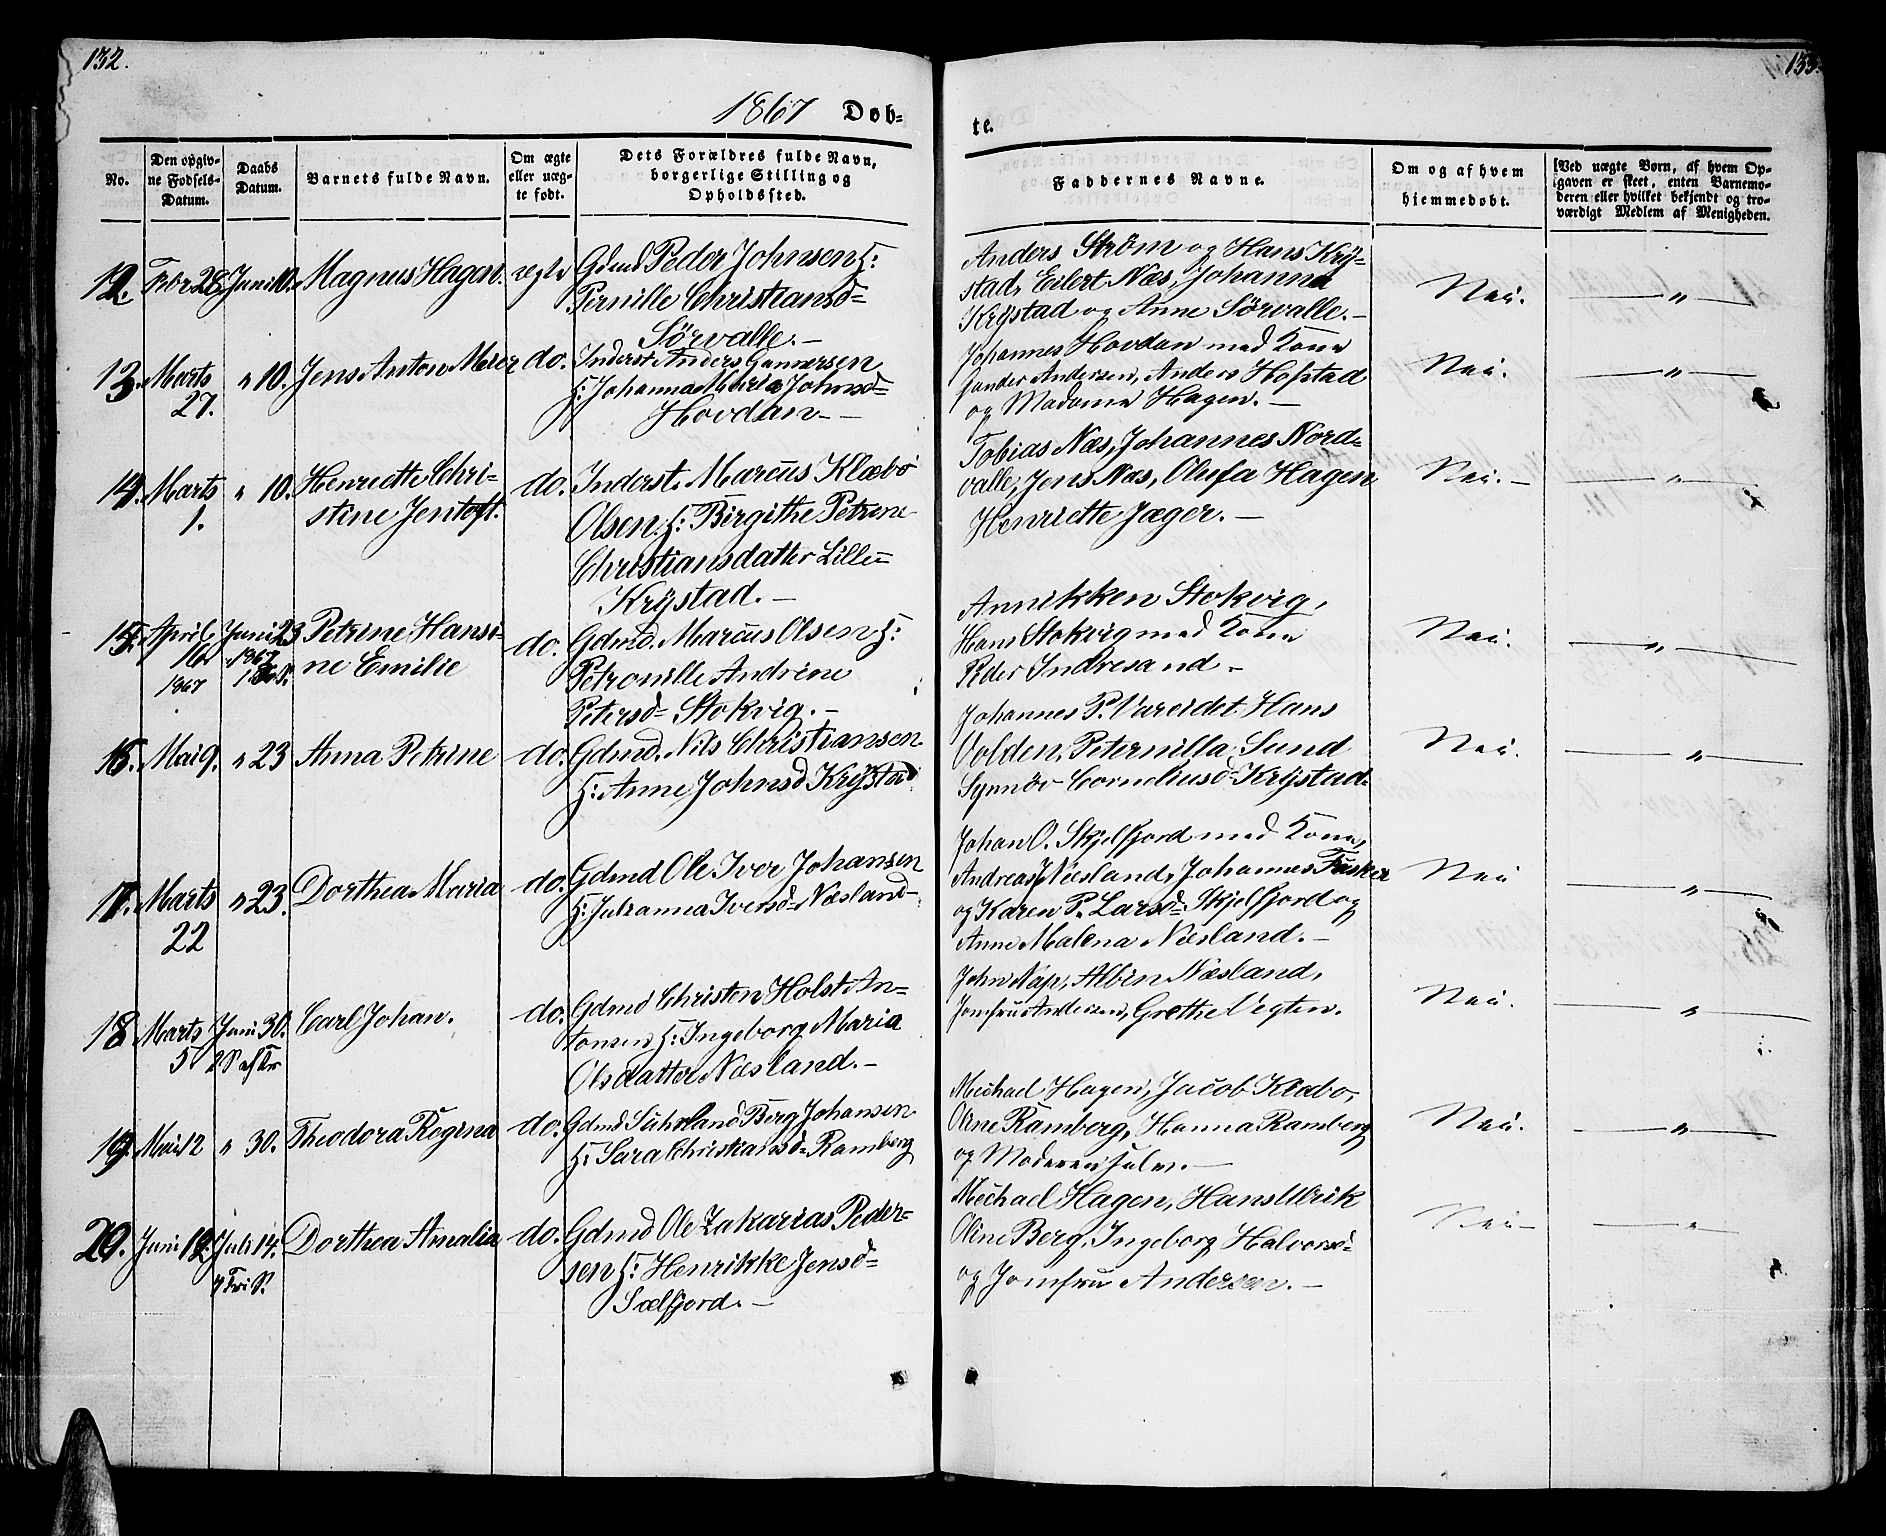 132.
133.
1867 Døb=
te.
No.
Den opgiv-
ne Fødsels-
Datum.
Daabs
Datum.
Barnets fulde Navn.
Om ægte
eller uæg-
te født.
Dets Forældres fulde Navn,
borgerlige Stilling og
Opholdssted.
Faddernes Navne.
Om og af hvem
hjemmedøbt.
Ved uægte Børn, af hvem Op-
gaven er skeet, enten Barnemo-
deren eller hvilket bekjendt og tro-
værdigt Medlem af Menigheden.
12. Febr 28. Juni 10. Magnus Hagen. ægte Gdmd Peder Johnsen H:
Pernille Christiansd=
Sörvalle.-
Anders Ström og Hans Krÿ-
stad, Eilert Næs, Johanna
Krÿstad og Anne Sörvalle.-
Nei. — " —
13. Marts
27.
" 10. Jens Anton Meier do. Inderst. Anders Gunnersen
H: Johanna Maria Johnsd=
Hovdan-
Johannes Hovdan med Kone
Sander Andersen, Anders Hofstad
og Madame Hagen.-
Nei. — " —
14. Marts
1.
" 10. Henriette Chri-
stine Jentoft.
do. Inderst. Marcus Klæbo
Olsen. H: Birgithe Petrine
Christiansdatter Lille=
Krÿstad.-
Tobias Næs, Johannes Nord=
valle, Jens Næs, Olufa Hagen
Henriette Jæger.-
Nei.- — " —
15. April
16
1867
Juni 23
1867
Petrine Hansi-
ne Emilie
do. Gdmd. Marcus Olsen H:
Petronille Andrine
Petersd= Stokvig.-
Annikken Stokvig,
Hans Stokvig med Kone
Peder Indresand-
Nei. — " —
16. Mai 9. " 23 Anna Petrine do. Gdmd. Nils Christiansen
H: Anne Johnsd Krÿstad
Johannes P. Vareidet Hans
Volden, Peternilla Sund
Synnöv Corneliusd Krÿstad-
Nei. — " —
17. Marts
22
" 23. Dorthea Maria do. Gdmd Ole Iver Johansen
H: Julianna Iversd= Næsland-
Johan O. Skjelfjord med Kone,
Andreas J Næsland, Johannes Fusker
og Karen P. Larsd= Skjelfjord og
Anne Malena Næsland.-
Nei — " —
18 Marts
5
Juni 30.
2 S ef Tr
Carl Johan. do. Gdmd Christen Holst An=
tonsen H: Ingeborg Maria
Olsdatter Næsland.-
John Nap, Albin Næsland,
Jomfru Andersen, Grethe Vegten.
Nei. — " —
19. Mai 12 " 30. Theodora Regina do. Gdmd Suhrland Berg Johansen
H: Sara Christiansd= Ramberg
Michael Hagen, Jacob Klæbo,
Oline Ramberg, Hanna Ramberg
og Moderen selv.-
Nei. — " —
20. Juni 12. Juli 14.
4 Tri S.
Dorthea Amalia do. Gdmd Ole Zakarias Peder=
sen H: Henrikke Jensd=
Sælfjord.-
Michael Hagen, Hans Ulrik
Oline Berg, Ingeborg Halvorsd=
og Jomfru Andersen.-
Nei- — " —